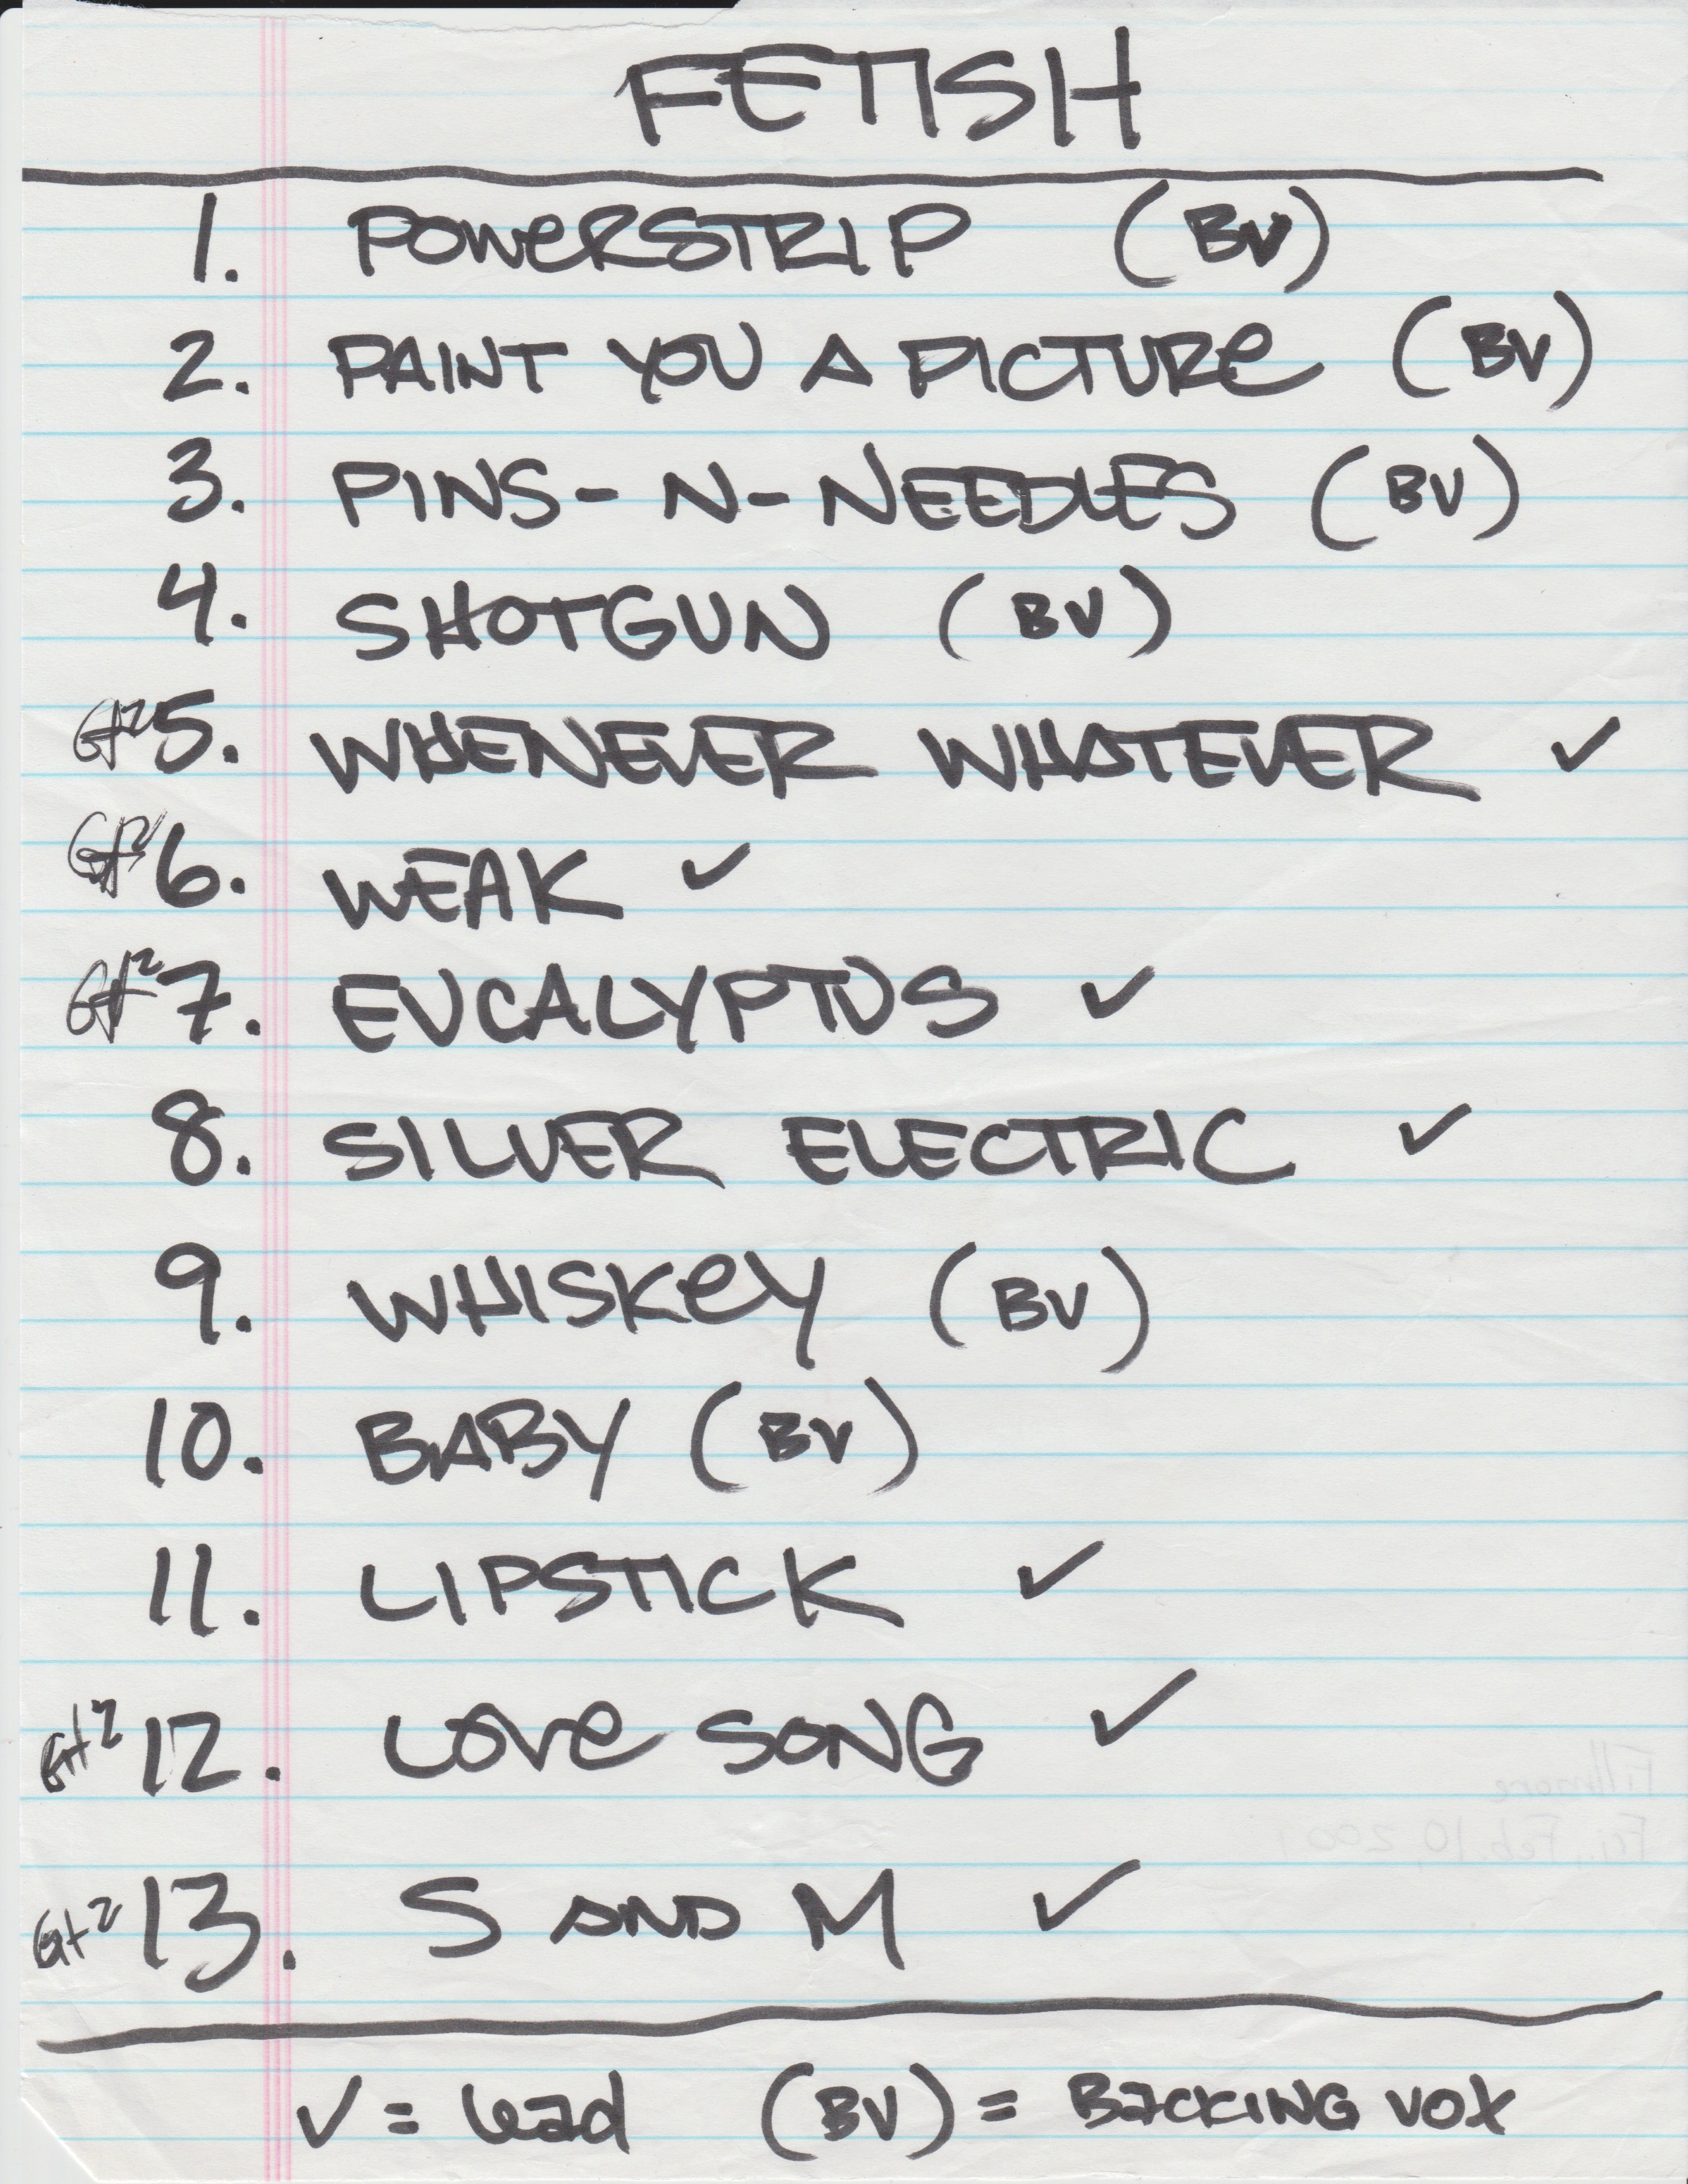 FETISH
1. POWERSTRIP (BV)
2. PAINT YOU A PICTURE (BV)
3. PINS-N-NEEDLES (BV)
4. SHOTGUN (BV)
Gt2 5. WHENEVER WHATEVER ✓
Gt2 6. WEAK ✓
Gt2 7. EUCALYPTUS ✓
8. SILVER ELECTRIC ✓
9. WHISKEY (BV)
10. BABY (BV)
11. LIPSTICK ✓
Gt2 12. LOVE SONG ✓
Fillmore
Fri., Feb. 10, 2001
Gt2 13. S AND M ✓
✓ = lead (BV) = BACKING VOX